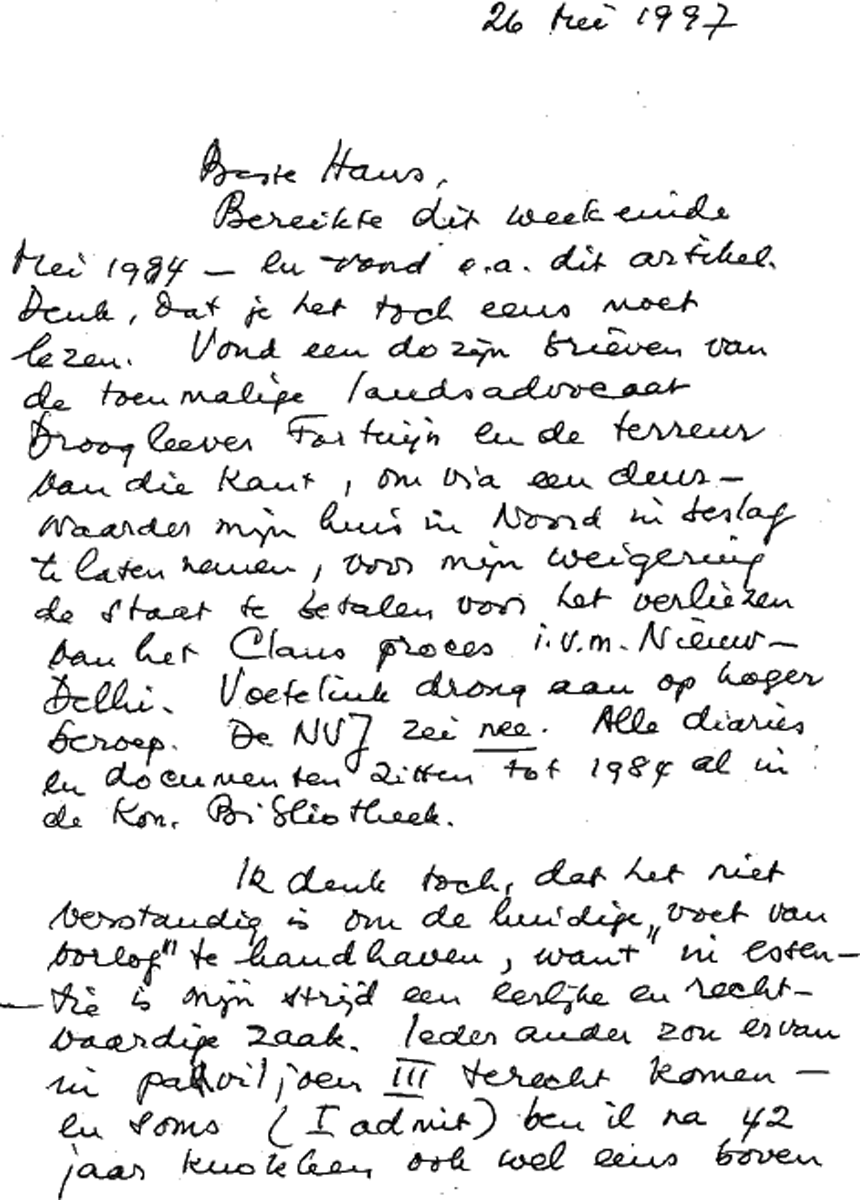 26 Mei 1997
Beste Hans,
Bereikte dit weekeinde
Mei 1984 — en vond o.a. dit artikel.
Denk, dat je het toch eens moet
lezen. Vond een dozijn brieven van
de toenmalige landsadvocaat
Droogleever Fortuijn en de terreur
van die kant, om via een deur-
waarder mijn huis in Noord in beslag
te laten nemen, voor mijn weigering
de staat te betalen voor het verliezen
van het Claus proces i.v.m. Nieuw-
Delhi. Voetelink drong aan op hoger
beroep. De NVJ zei nee. Alle diaries
en documenten zitten tot 1984 al in
de Kon. Bibliotheek.
Ik denk toch, dat het niet
verstandig is om de huidige „voet van
oorlog" te handhaven, want in essen-
tie is mijn strijd een eerlijke en recht-
vaardige zaak. Ieder ander zou ervan
in paviljoen III terecht komen —
en soms (I admit) ben ik na 42
jaar knokken ook wel eens boven